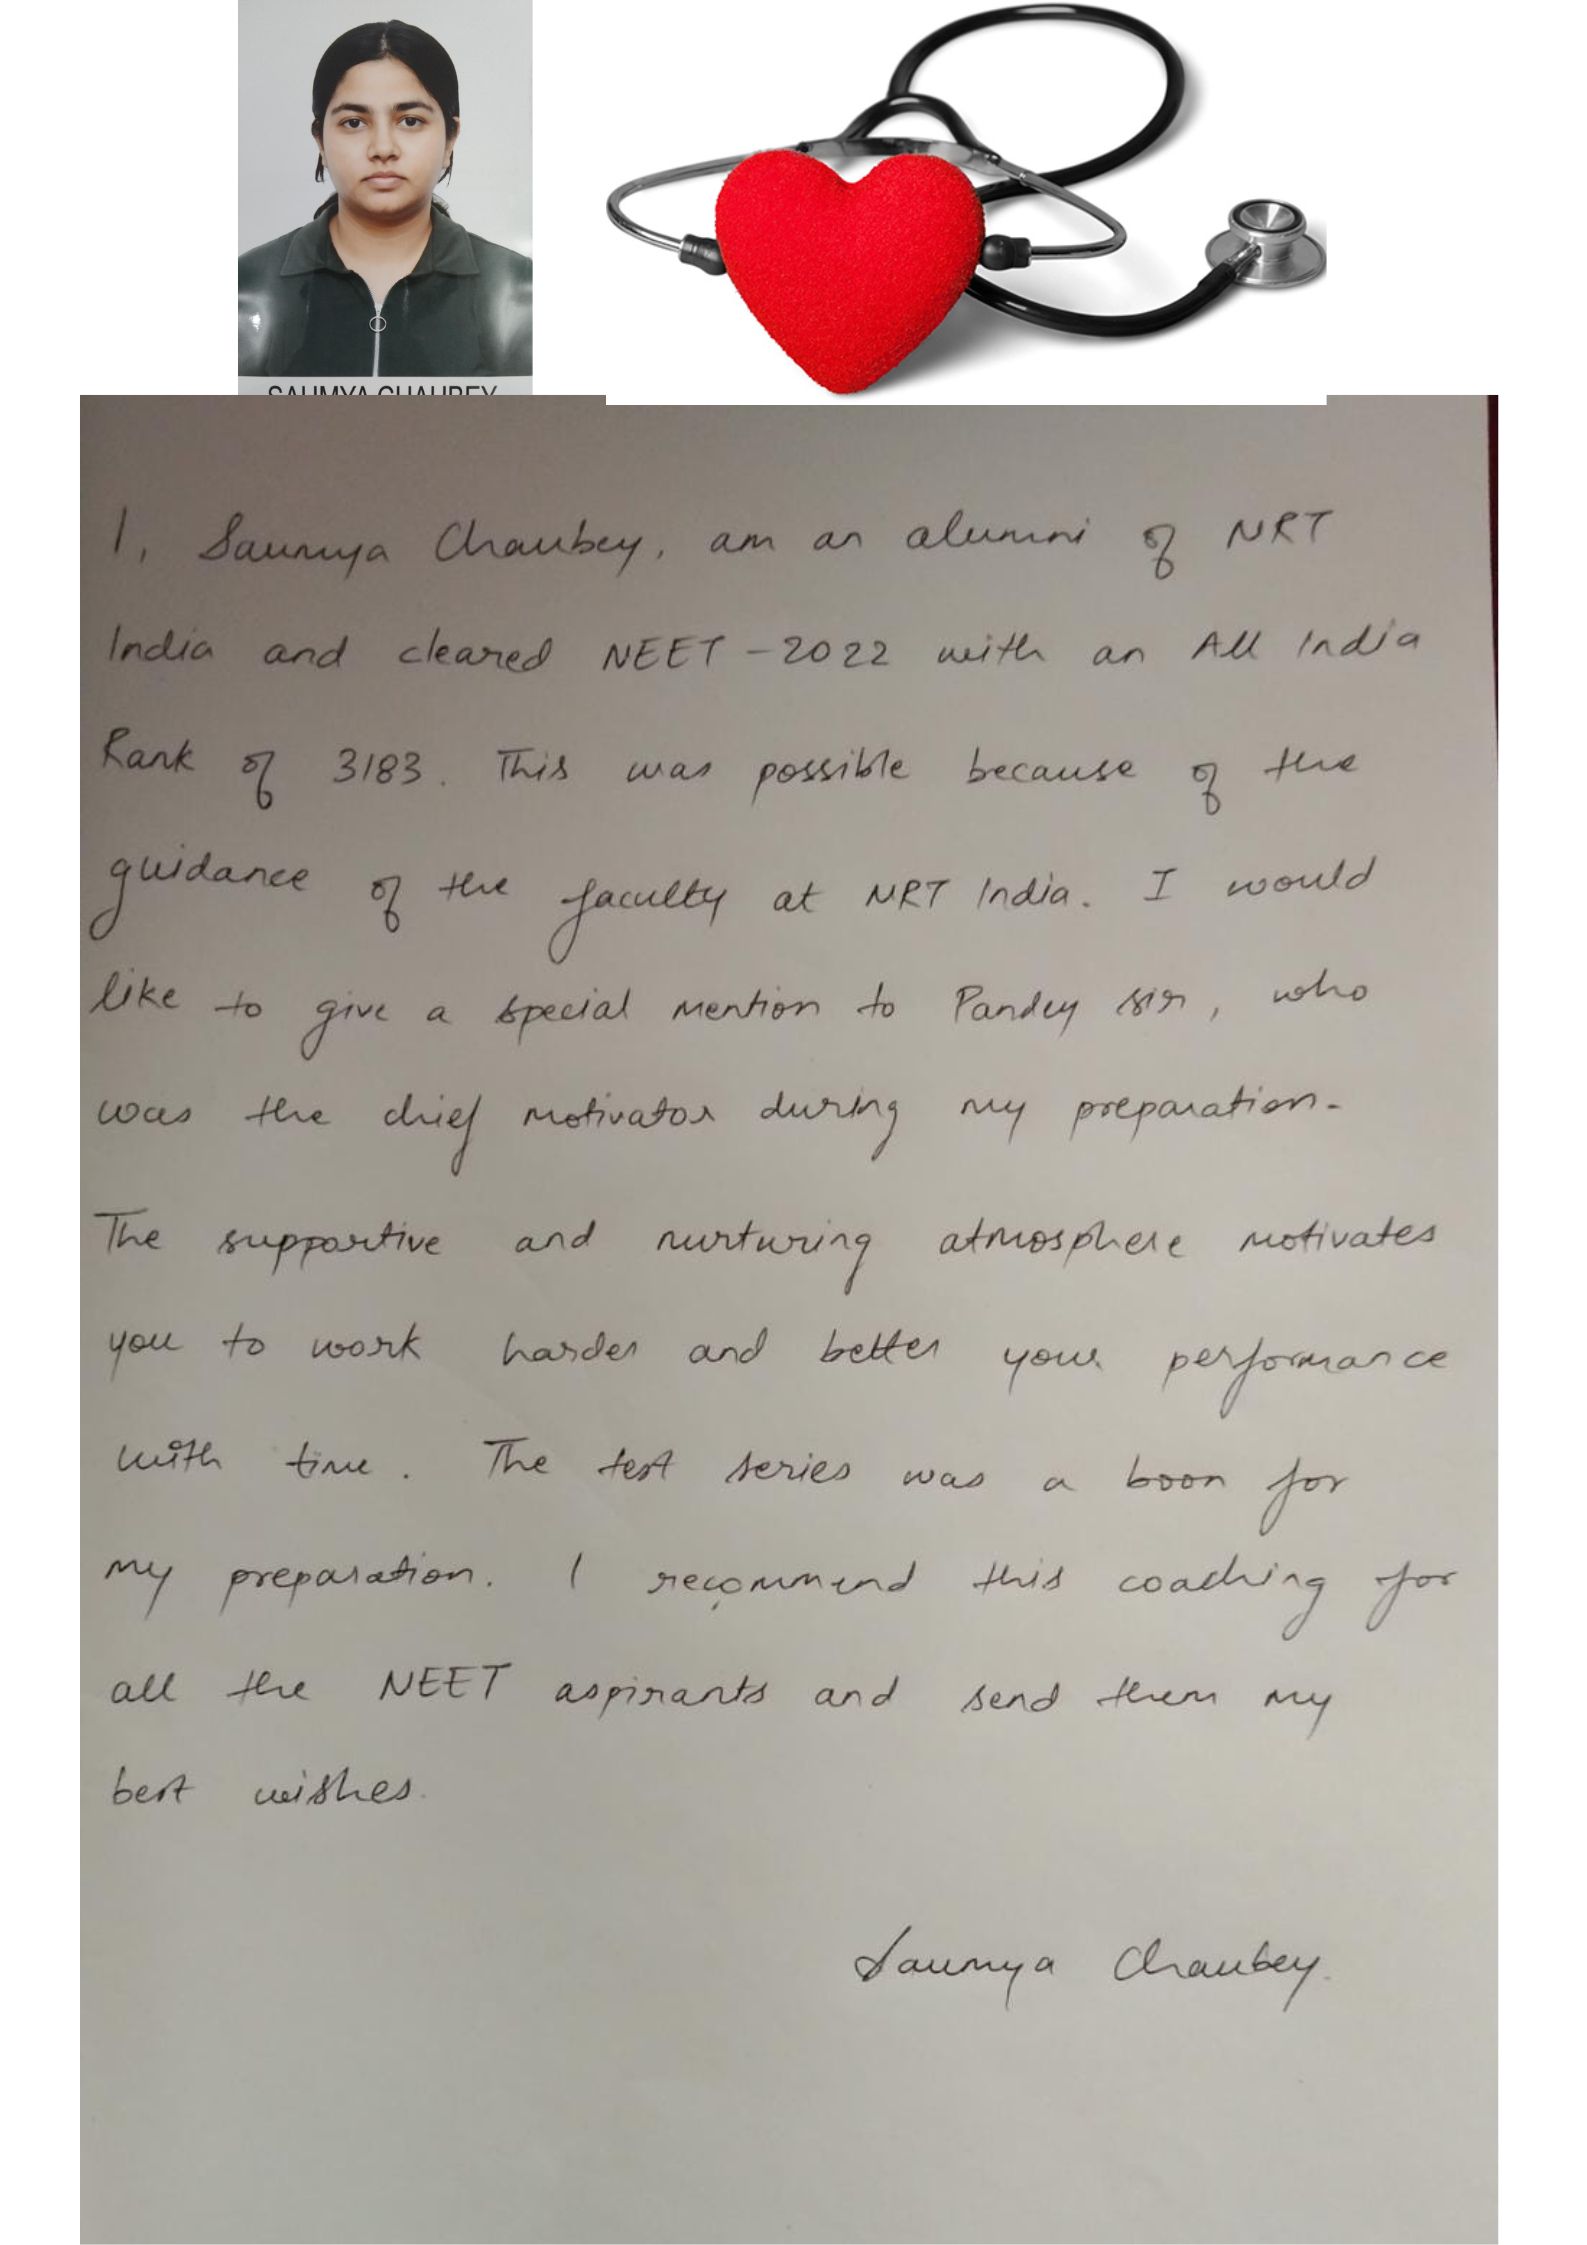 SAUMYA CHAUBEY
I, Saumya Chaubey, am an alumni of NRT
India and cleared NEET-2022 with an All India
Rank of 3183. This was possible because of the
guidance of the faculty at NRT India. I would
like to give a special mention to Pandey sir, who
was the chief motivator during my preparation.
The supportive and nurturing atmosphere motivates
you to work harder and better your performance
with time. The test series was a boon for
my preparation. I recommend this coaching for
all the NEET aspirants and send them my
best wishes.
Saumya Chaubey.